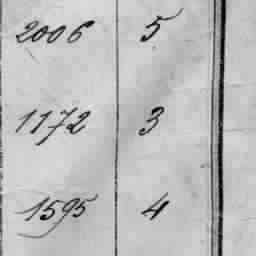 2006 5
1172 3
1595 4